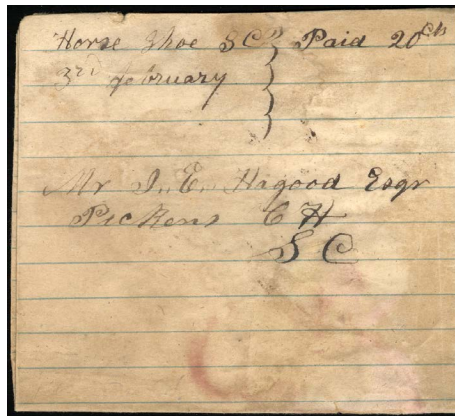 Horse Shoe S C } Paid 20 cts
3rd february
Mr J. E. Hagood Esqr
Pickens C H
S C